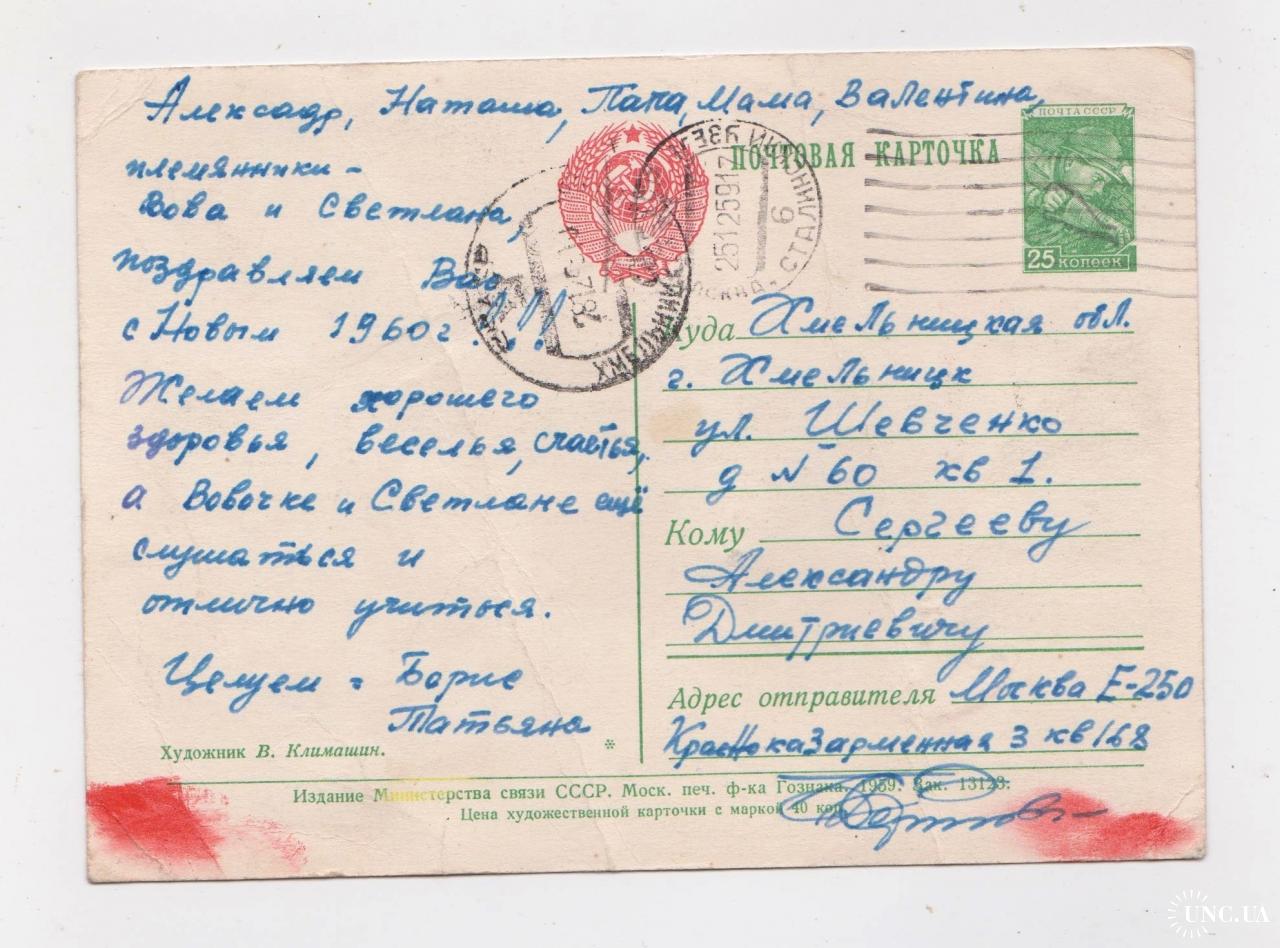 Алексадр, Наташа, Папа, Мама, Валентина,
племянники -
Вова и Светлана,
поздравляем Вас
с Новым 1960 г. !!!
Желаем хорошего
здоровья, веселья, счастья,
а Вовочке и Светлане ещё
слушаться и
отлично учиться.
Целуем = Борис
Татьяна
Художник В. Климашин.
*
ПОЧТОВАЯ КАРТОЧКА
ПОЧТА СССР
25 копеек
25125917
СТАЛИНСКИЙ УЗЕЛ
6
МОСКВА
Куда Хмельницкая обл.
г. Хмельницк
ул. Шевченко
д N 60 кв 1.
Кому Сергееву
Александру
Дмитриевичу
Адрес отправителя Москва Е-250
Красноказарменная 3 кв 168
Издание Министерства связи СССР. Моск. печ. ф-ка Гознака. 1959. Зак. 13123.
Цена художественной карточки с маркой 40 коп.
UNC.UA